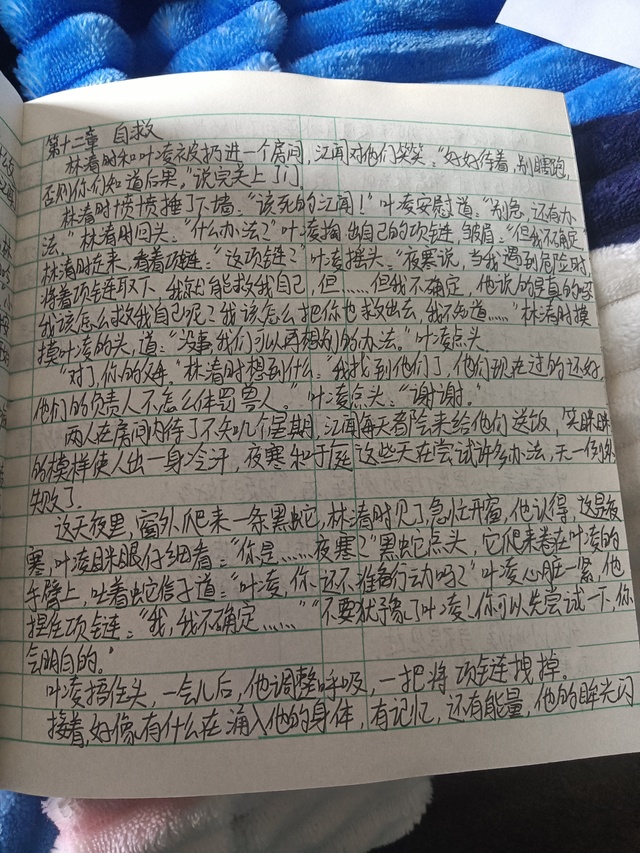 第十二章 自救
林清时和叶凌被扔进一个房间,江闻对他们笑笑:“好好待着,别瞎跑,
否则你们知道后果。”说完关上了门。
林清时愤愤捶了下墙:“该死的江闻!”叶凌安慰道:“别急,还有办
法。”林清时回头:“什么办法?”叶凌掏出自己的项链,皱眉:“但我不确定”
林清时走来,看着项链:“这项链?”叶凌摇头:“夜寒说,当我遇到危险时,
将着项链取下,我就能救我自己,但……但我不确定,他说的是真的吗
我该怎么救我自己呢?我该怎么把你也救出去,我不知道……”林清时摸
摸叶凌的头,道:“没事,我们可以再想别的办法。”叶凌点头
“对了,你的父母。”林清时想到什么:“我找到他们了,他们现在过的还好,
他们的负责人不怎么体罚兽人。”叶凌点头:“谢谢。”
两人在房间内待了不知几个星期,江闻每天都会来给他们送饭,笑眯眯
的模样使人出一身冷汗,夜寒和于庭这些天在尝试许多办法,无一例外
失败了。
这天夜里,窗外爬来一条黑蛇,林清时见了急忙开窗,他认得,这是夜
寒,叶凌眯眼仔细看:“你是……夜寒?”黑蛇点头,它爬来卷在叶凌的
手臂上,吐着蛇信子道:“叶凌,你还不准备行动吗?”叶凌心脏一紧,他
捏住项链:“我,我不确定……”“不要犹豫了叶凌!你可以先尝试一下,你
会明白的。”
叶凌捂住头,一会儿后,他调整呼吸,一把将项链拽掉。
接着,好像有什么在涌入他的身体,有记忆,还有能量,他的眸光闪